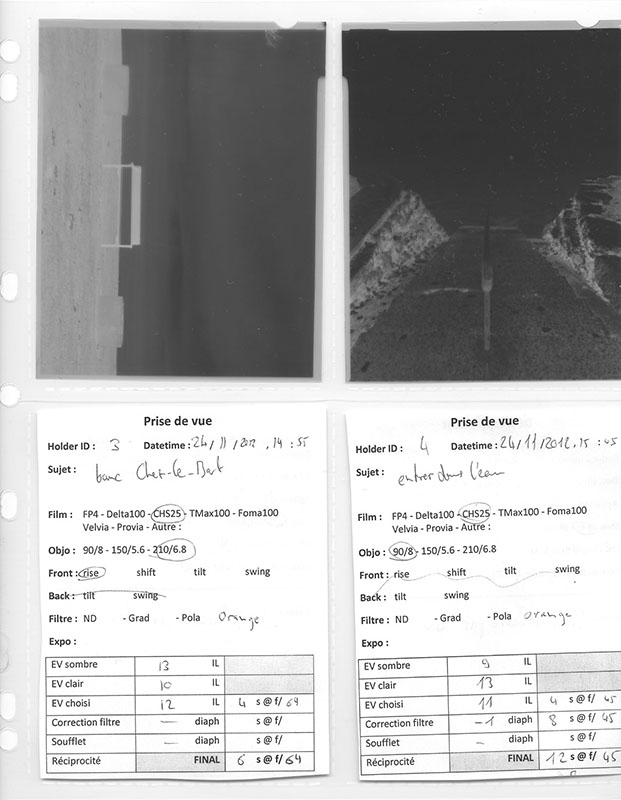 Prise de vue
Holder ID : 3 Datetime : 24/11/2012, 14 : 55
Sujet : banc Chez-le-Bart
Film : FP4 - Delta100 - CHS25 - TMax100 - Foma100
Velvia - Provia - Autre :
Objo : 90/8 - 150/5.6 - 210/6.8
Front : rise shift tilt swing
Back : tilt swing
Filtre : ND - Grad - Pola Orange
Expo :
EV sombre 13 IL
EV clair 10 IL
EV choisi 12 IL 4 s @ f/ 64
Correction filtre — diaph s @ f/
Soufflet — diaph s @ f/
Réciprocité FINAL 6 s @ f/ 64
Prise de vue
Holder ID : 4 Datetime : 24/11/2012, 15 : 45
Sujet : entrer dans l'eau
Film : FP4 - Delta100 - CHS25 - TMax100 - Foma100
Velvia - Provia - Autre :
Objo : 90/8 - 150/5.6 - 210/6.8
Front : rise shift tilt swing
Back : tilt swing
Filtre : ND - Grad - Pola orange
Expo :
EV sombre 9 IL
EV clair 13 IL
EV choisi 11 IL 4 s @ f/ 45
Correction filtre -1 diaph 8 s @ f/ 45
Soufflet - diaph s @ f/
Réciprocité FINAL 12 s @ f/ 45